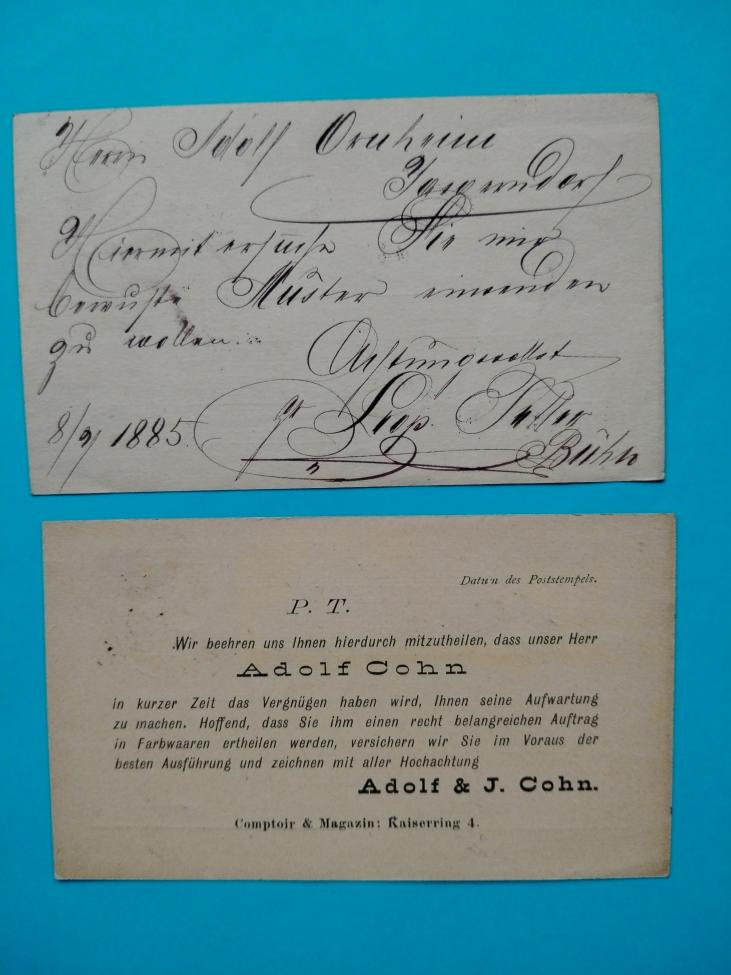 Herrn Adolf Ornheim
Jägerndorf
Hiermit ersuche Sie mir
bewußte Muster einsenden
zu wollen.
Achtungsvollst
Leop.
8/9 1885.
Datum des Poststempels.
P. T.
Wir beehren uns Ihnen hierdurch mitzutheilen, dass unser Herr
Adolf Cohn
in kurzer Zeit das Vergnügen haben wird, Ihnen seine Aufwartung
zu machen. Hoffend, dass Sie ihm einen recht belangreichen Auftrag
in Farbwaaren ertheilen werden, versichern wir Sie im Voraus der
besten Ausführung und zeichnen mit aller Hochachtung
Adolf & J. Cohn.
Comptoir & Magazin: Kaiserring 4.